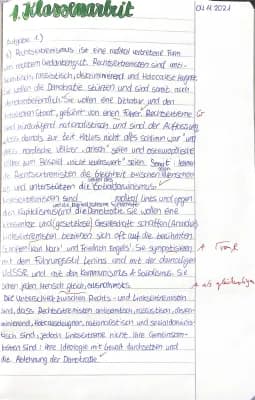 1. Klassenarbeit
04.11.2021
Aufgabe 1.)
a) Rechtsextremismus ist eine radikal vertretene Form
von rechtem Gedankengut. Rechtsextremisten sind anti-
semitisch, rassistisch, diskriminierend und Holocaust leugnend.
Sie wollen die Demokratie stürzen und sind somit auch
Sie wollen eine Diktatur und den
Staat, geführt von einem Führer. Rechtsextreme
sind nationalistisch und sind der Auffassung,
dass damals zur Zeit Hitlers nicht alles schlimm war und
nordische Völker "arisch" seien und osteuropäische
Völker zum Beispiel nicht seien. Somit
die Rechtsextremisten die Gleichheit zwischen Menschen
ab und unterstützen die
sind radikal links und gegen
den Kapitalismus und die Demokratie. Sie wollen eine
und gesetzlose Gesellschaft schaffen
Linksextremisten beziehen sich oft auf die
Karl Marx' und Friedrich Engels'. Sie sympatisieren
mit dem Führungsstil Lenins und mit der damaligen
UdSSR und mit dem Kommunismus & Sozialismus. Sie
sehen jeden Mensch gleich, ausnahmslos.
Die Unterschiede zwischen Rechts- und Linksextremisten
sind, dass Rechtsextremisten antisemitisch, rassistisch, diskri-
minierend, Holocaustleugner, nationalistisch und
sind, jedoch Linksextreme nicht. Ihre Gemeinsam-
keiten sind: ihre Ideologie mit Gewalt durchsetzen und
die Ablehnung der Demokratie.